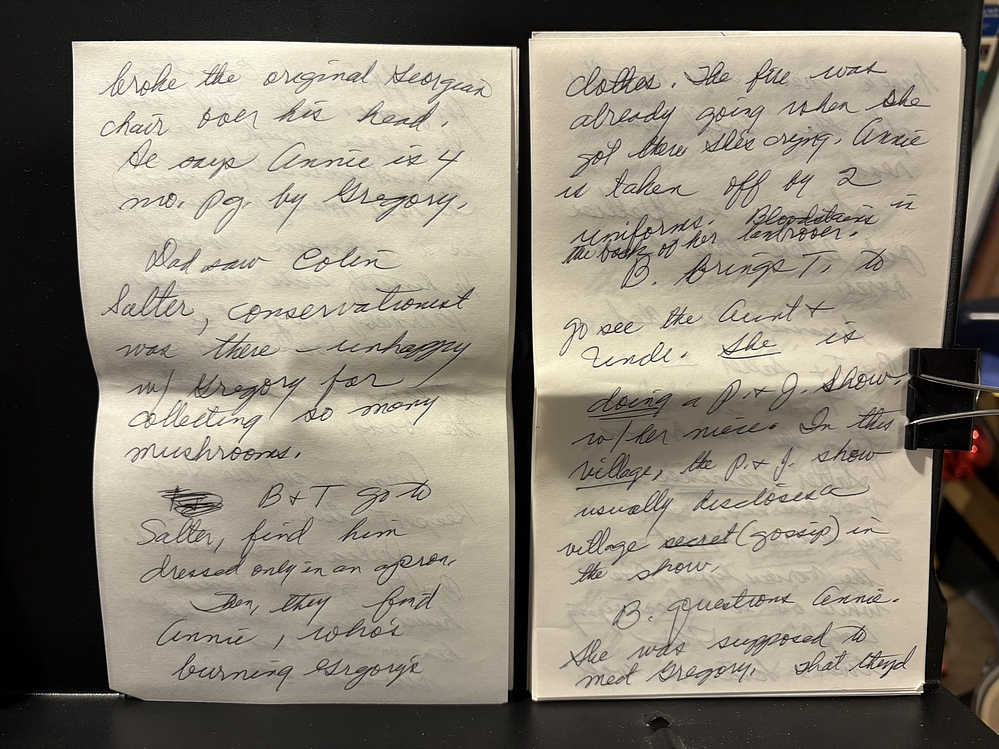 broke the original Georgian
chair over his head.
He says Annie is 4
mo. pg. by Gregory.
Dad saw Colin
Salter, conservationist
was there – unhappy
w/ Gregory for
collecting so many
mushrooms.
B + T go to
Salter, find him
dressed only in an apron.
Then, they find
Annie, who's
burning Gregory's
clothes. The fire was
already going when she
got there she's crying. Annie
is taken off by 2
uniforms. Bloodstains in
the back of her landrover.
B. brings T. to
go see the Aunt +
Uncle. She is
doing a P. + J. show
w/ her niece. In this
village, the P. + J. show
usually discloses a
village secret (gossip) in
the show.
B. questions Annie.
She was supposed to
meet Gregory. That they'd